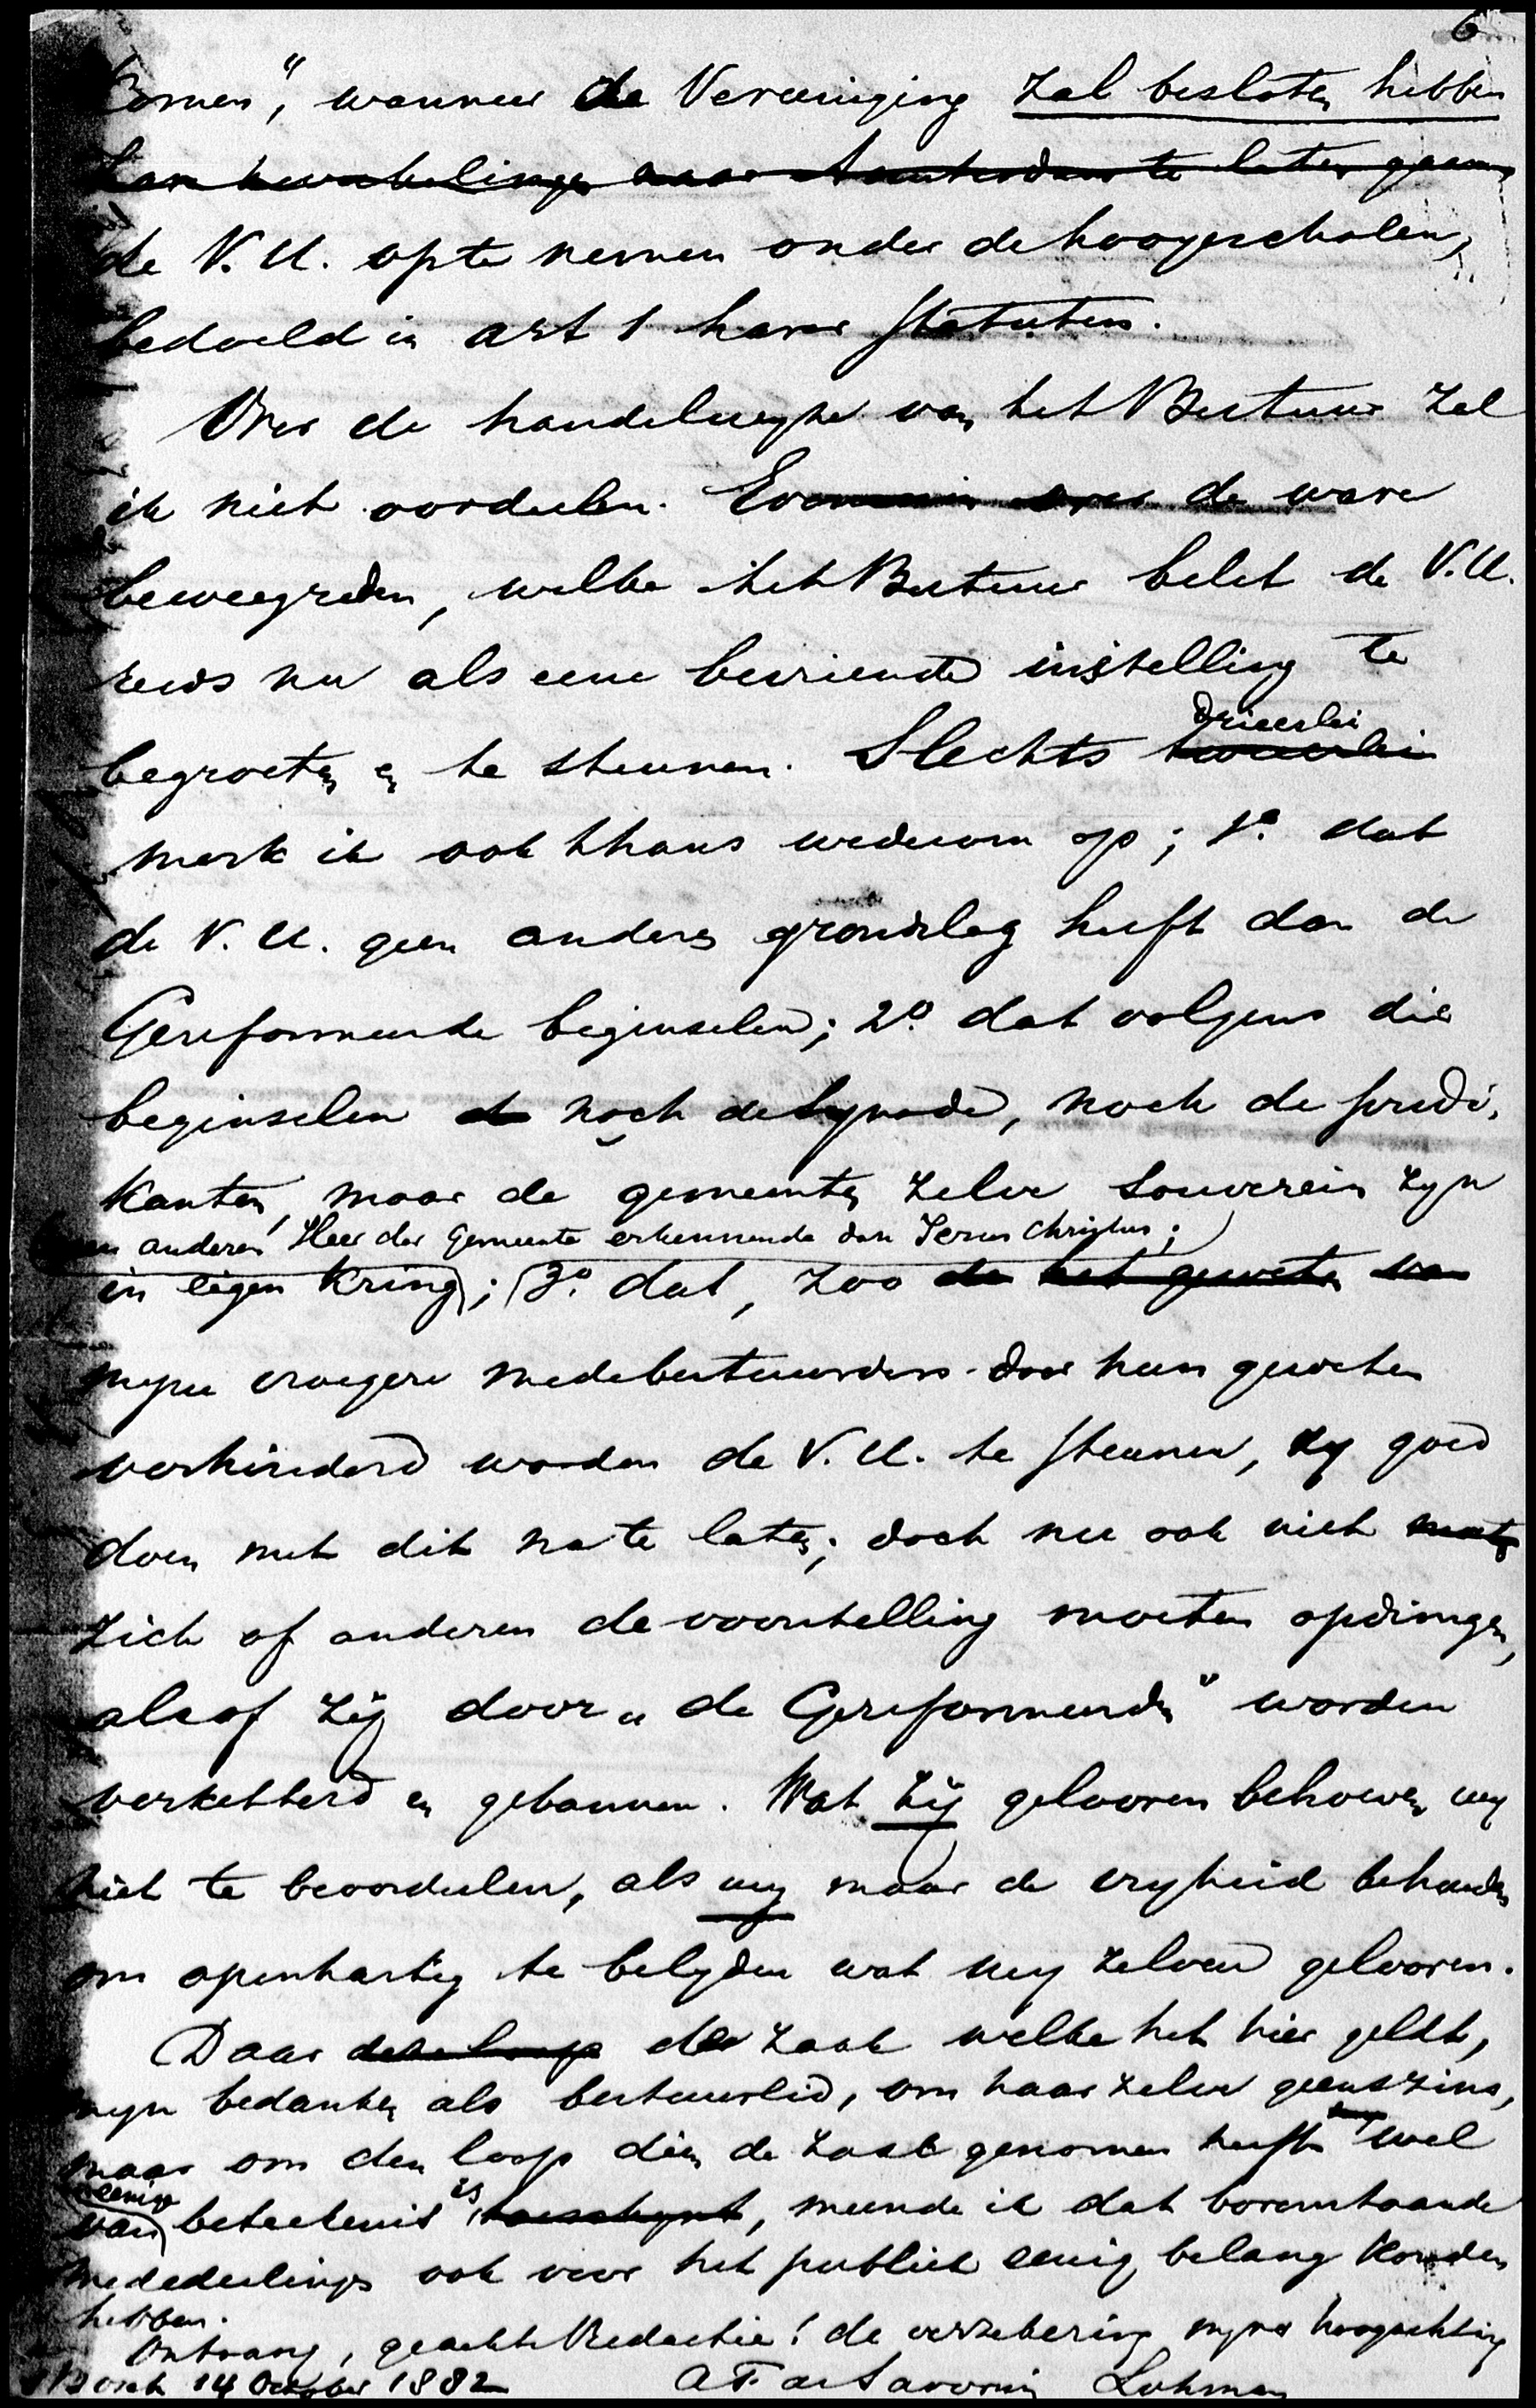 6
komen", wanneer de Vereeniging zal besloten hebben
hare kweekelingen naar Amsterdam te laten gaan
de V.U. op te nemen onder de hoogescholen,
bedoeld in art 1 harer statuten.
Over de handelwyze van het Bestuur zal
ik niet oordeelen. Evenmin over de ware
beweegreden, welke het Bestuur belet de V.U.
reeds nu als eene bevriende instelling te
begroeten en te steunen. Slechts drieerlei tweeerlei
merk ik ook thans wederom op; 1o. dat
de V.U. geen andere grondslag heeft dan de
Gereformeerde beginselen; 2o. dat volgens die
beginselen de noch de Synode, noch de predi-
kanten, maar de gemeenten zelve souverein zyn
geen anderen Heer der Gemeente erkennende dan Jezus Christus;
in eigen kring; 3o. dat, zoo de het geweten van
myne vroegere medebestuurders door hun geweten
verhinderd worden de V.U. te steunen, zy goed
doen met dit na te laten; doch nu ook niet moeten
zich of anderen de voorstelling moeten opdringen,
alsof zij door "de Gereformeerden" worden
verketterd en gebannen. Wat zij gelooven behoeven wy
niet te beoordeelen, als wy maar de vryheid behouden
om openhartig te belyden wat wy zelven gelooven.
Daar de loop der zaak welke het hier geldt,
myn bedanken als bestuurslid, om haar zelve geenszins,
maar om den loop dien de zaak genomen heeft wel
van eenige beteekenis is toeschynt, meende ik dat bovenstaande
mededeelings ook voor het publiek eenig belang konden
hebben.
Ontvang, geachte Redactie! de verzekering myner hoogachting
's Bosch 14 October 1882 A F de Savornin Lohman